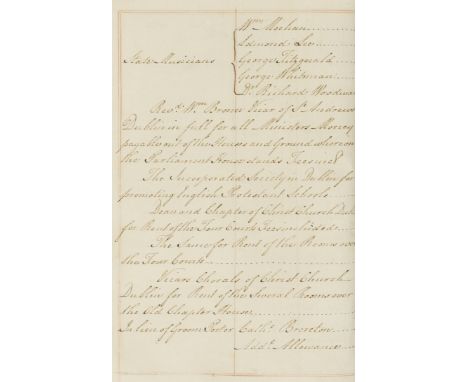 Wm. Meehan
Edmond Lee
State Musicians George Fitzgerald
George Whitman
Dr. Richard Woodwar
Revd. Wm. Browne Vicar of St. Andrews
Dublin in full for all Ministers Money
payable out of the House and Ground whereon
the Parliament House stands
The Incorporated Society in Dublin for
promoting English Protestant Schools
Dean and Chapter of Christ Church Dub
for Rent of the Four Courts
The Same for Rent of the Rooms over
the Four Courts
Vicars Chorals of Christ Church
Dublin for Rent of the Several Rooms over
the Old Chapter House
In lieu of Groom Porter Cathe. Brereton
Addl. Allowance